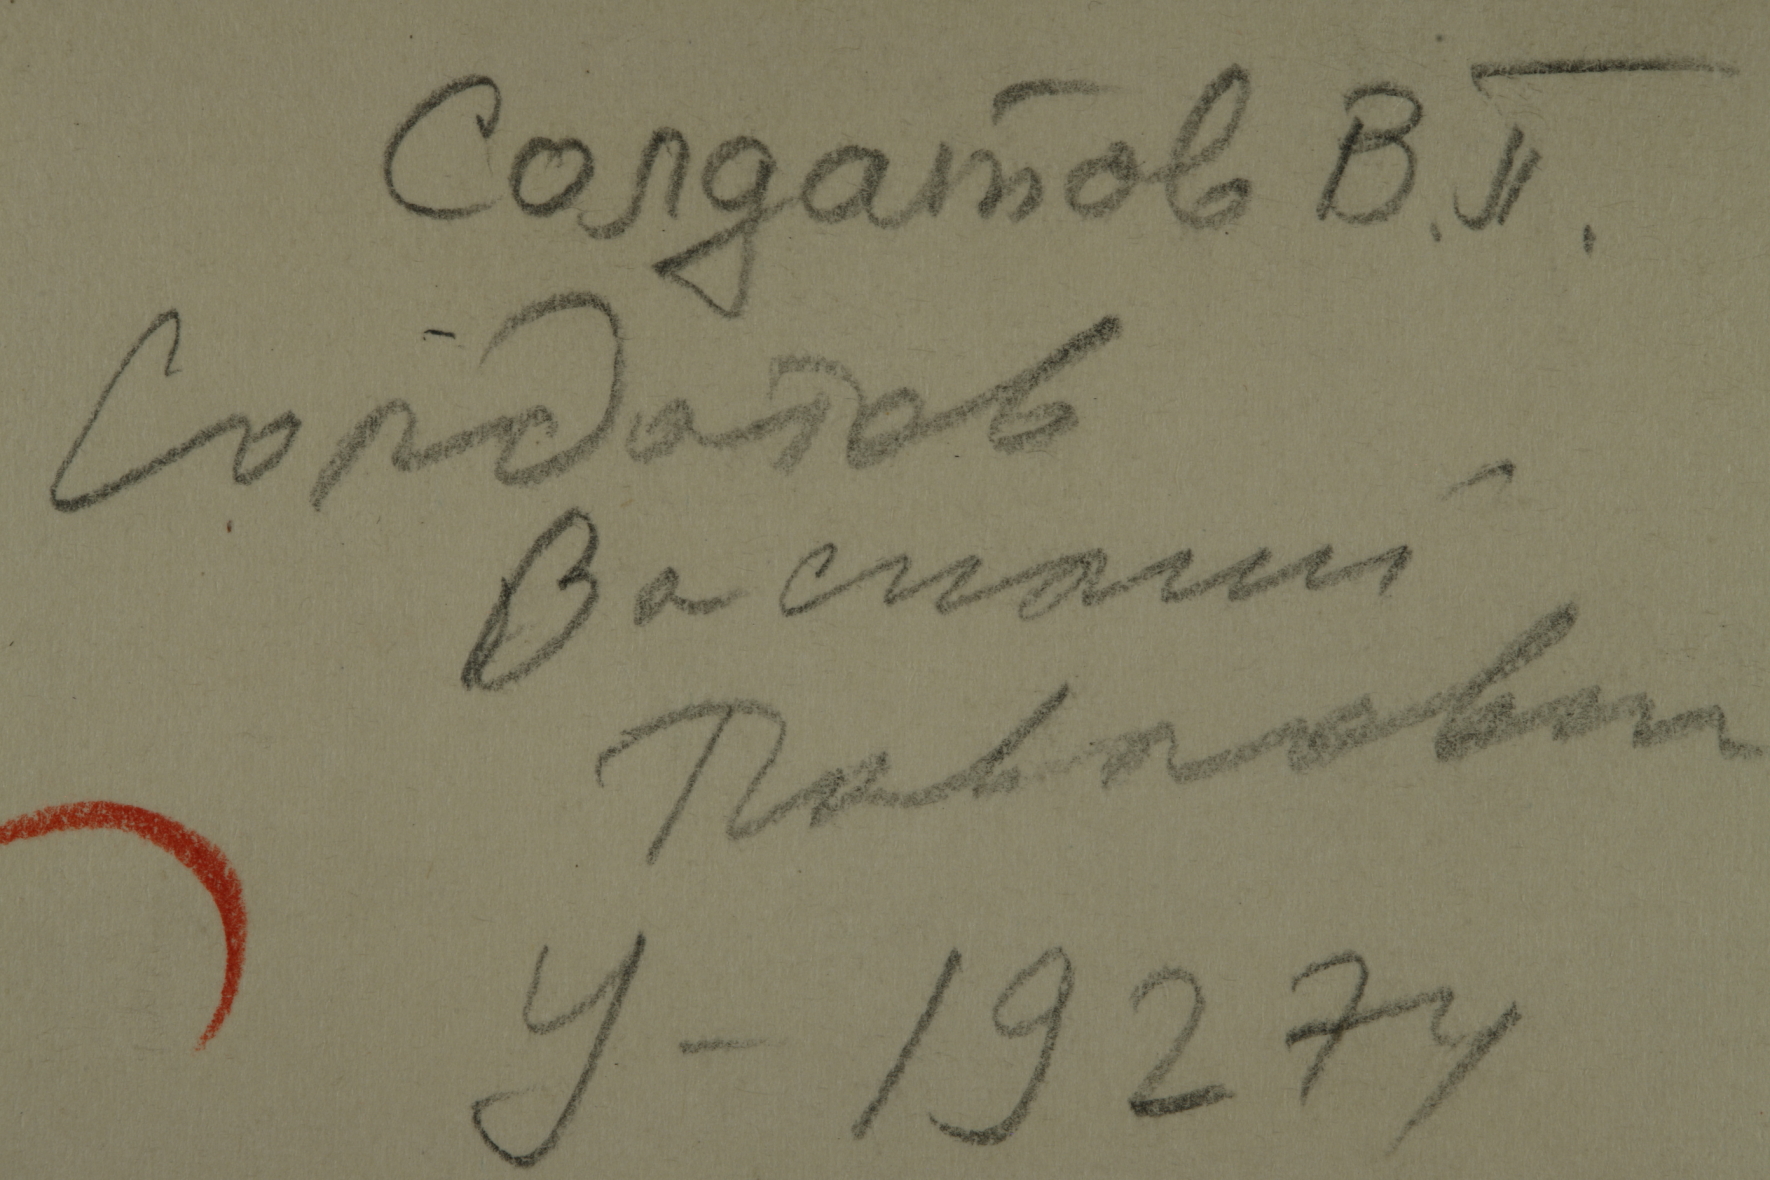 Солдатов В.П.
Солдатов
Василий
Павлович
У-1927г